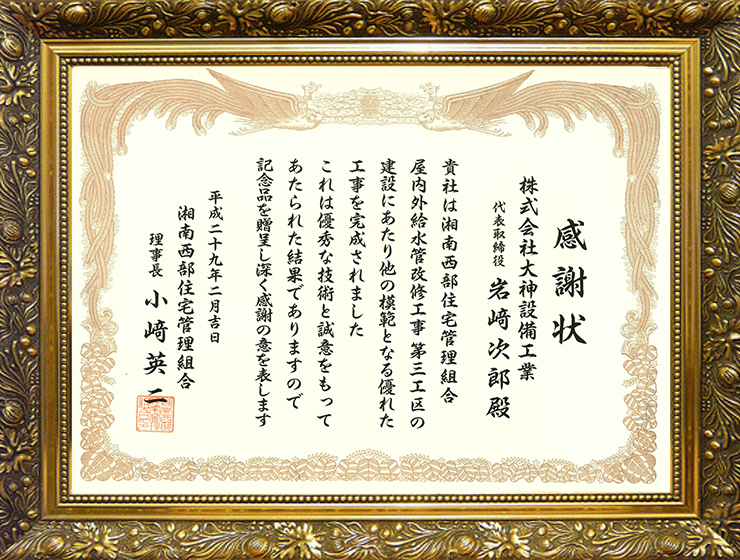 感謝状
株式会社大神設備工業
代表取締役 岩﨑次郎殿
貴社は湘南西部住宅管理組合
屋内外給水管改修工事 第三工区の
建設にあたり他の模範となる優れた
工事を完成されました
これは優秀な技術と誠意をもって
あたられた結果でありますので
記念品を贈呈し深く感謝の意を表します
平成二十九年二月吉日
湘南西部住宅管理組合
理事長 小﨑英二